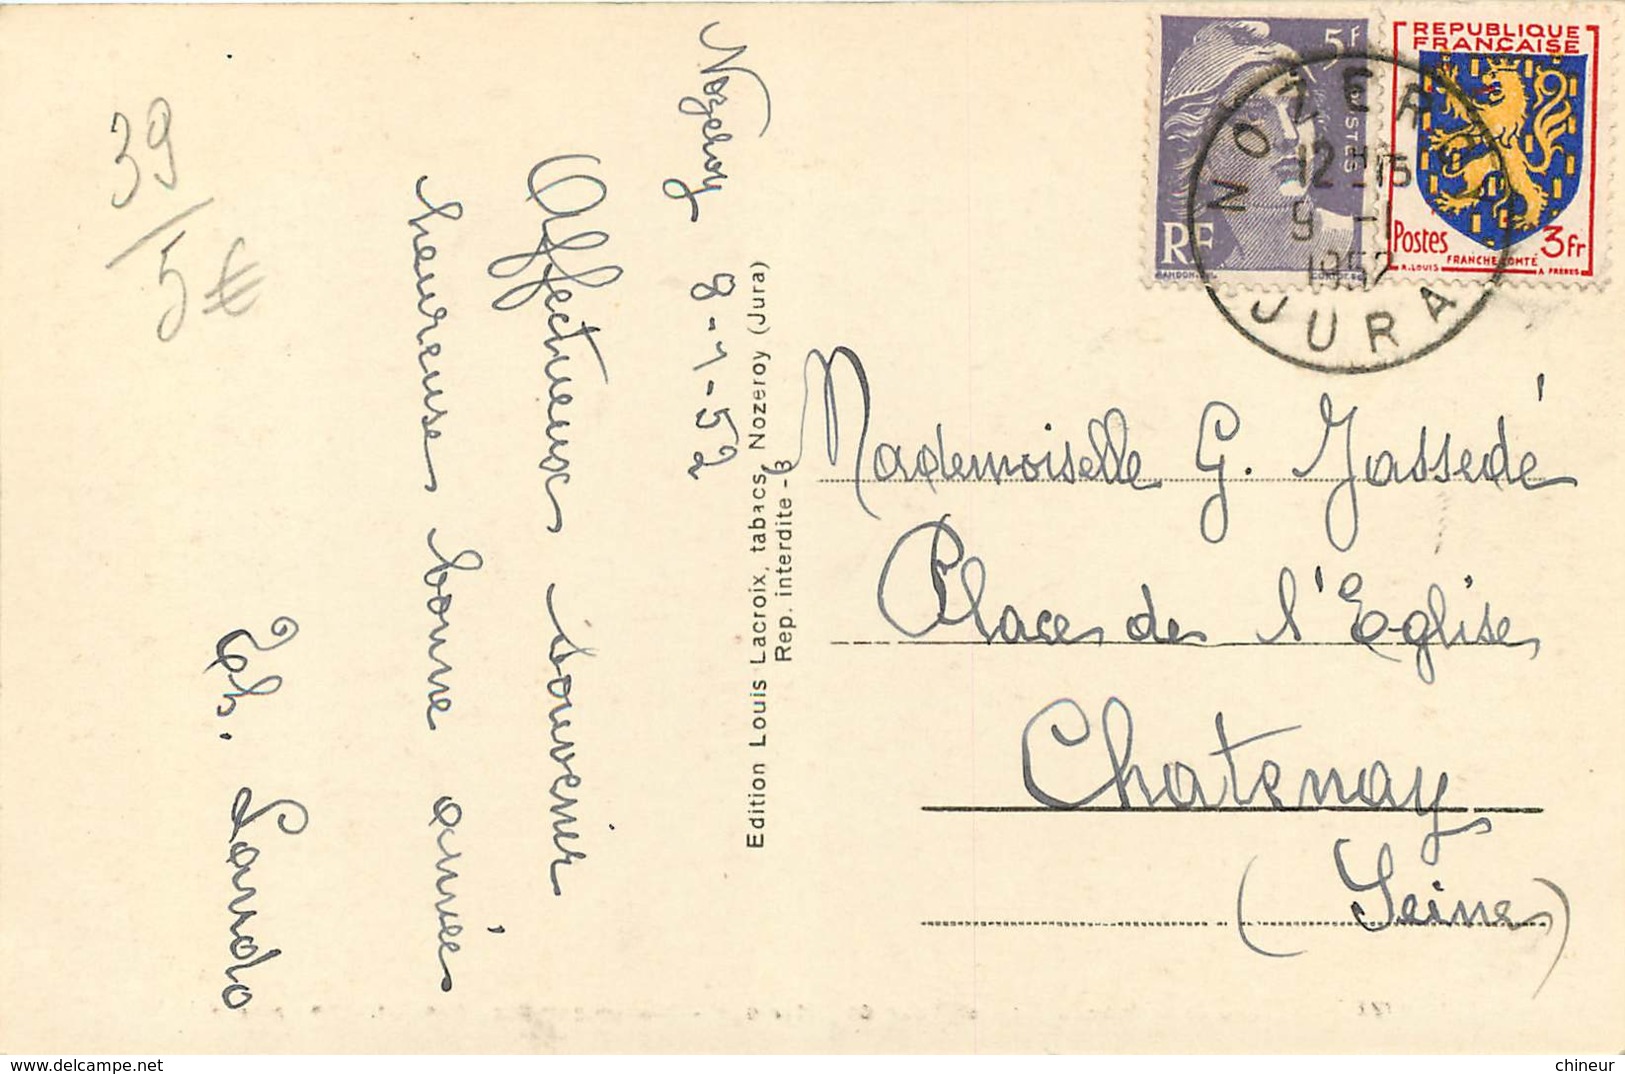 39
/5€
Nozeroy
8-1-52
Affectueux souvenir
heureuse bonne année
Edition Louis Lacroix, tabacs, Nozeroy (Jura)
Rep. interdite - B
5F
POSTES
RF
REPUBLIQUE
FRANÇAISE
Postes 3fr
FRANCHE-COMTÉ
R. LOUIS A FRÈRES
NOZEROY
12H15
9-1
1952
JURA
Mademoiselle G. Jassedé
Place de l'Eglise
Chatenay
(Seine)
chineur